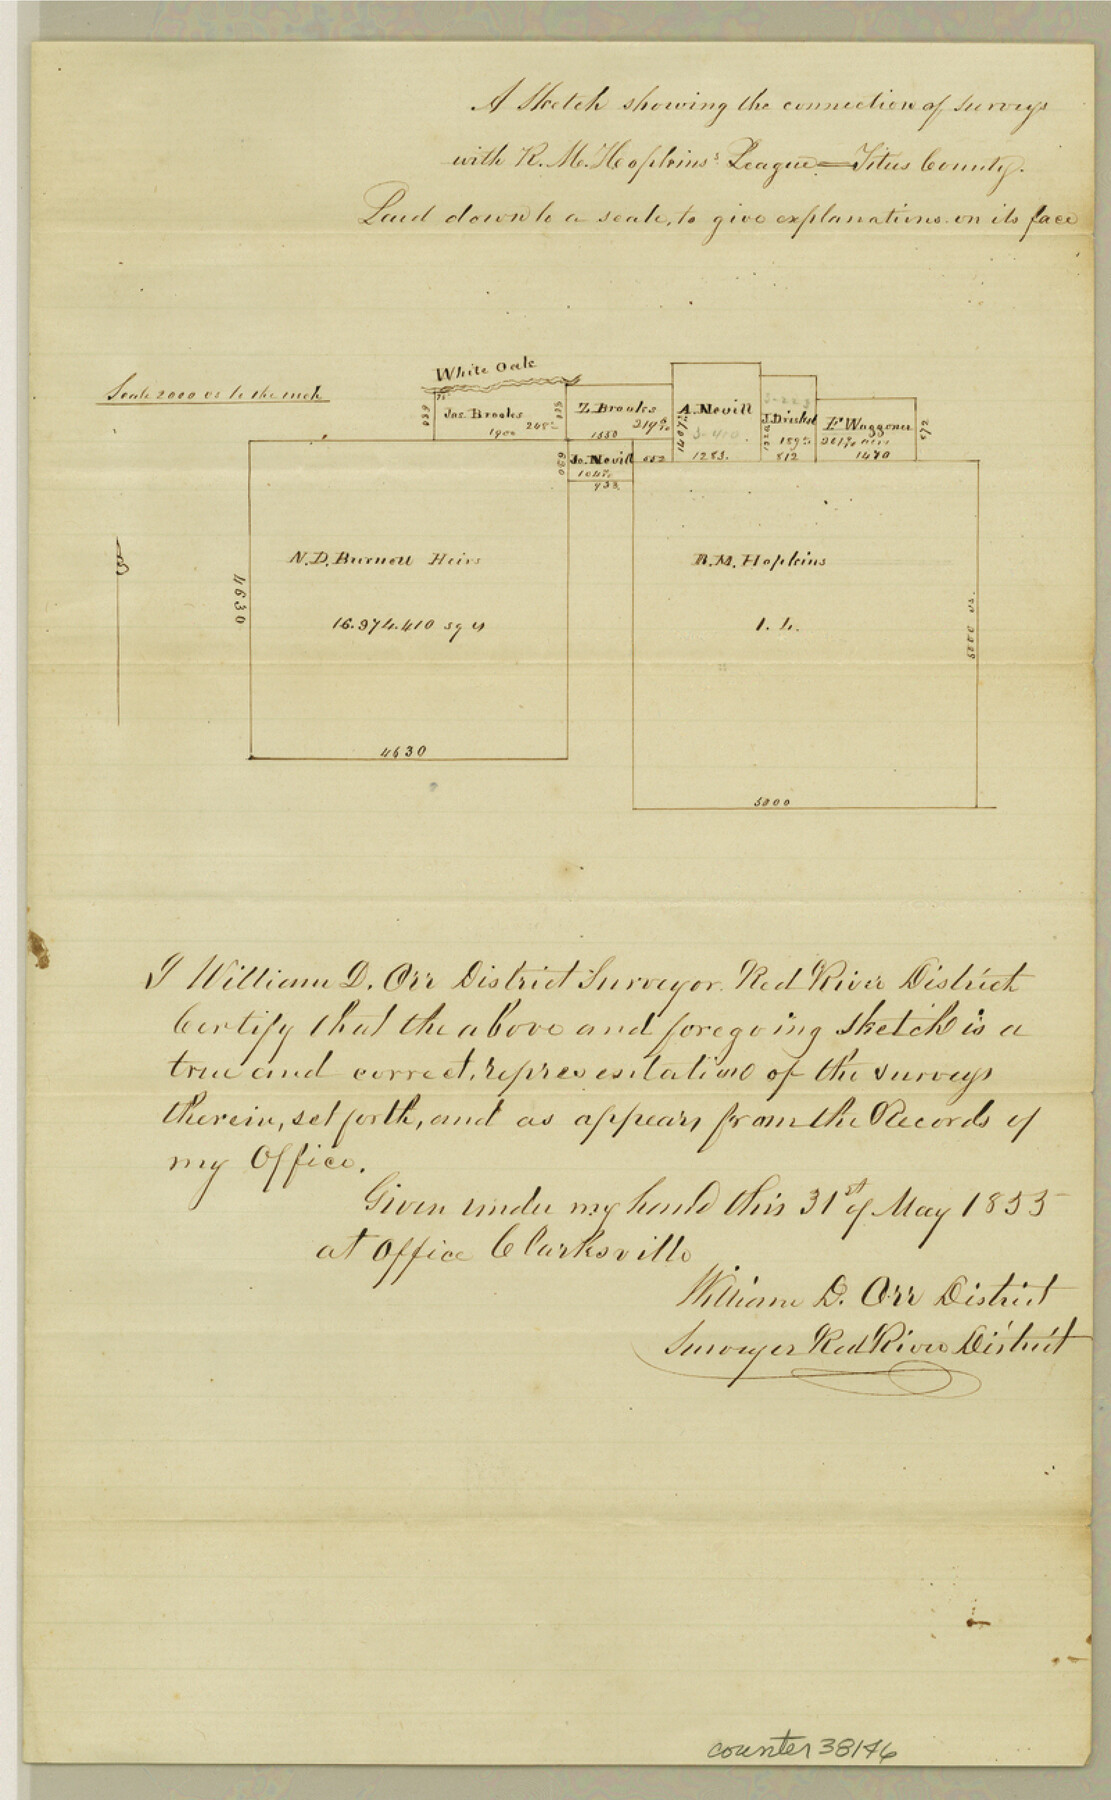 A Sketch showing the connection of surveys
with R. M. Hopkins' League = Titus County.
Laid down to a scale, to give explanations on its face
Scale 2000 vs to the inch
White Oak
Jas. Brooks
1900
Z. Brooks
1550
A. Nevill
1283.
J. Driskel
812
E. Waggoner
1470
672
Jo. Nevill
652
933
N. D. Burnett Heirs
16.974.410 sq vs
4630
4630
R. M. Hopkins
1. L.
5000 vs.
5000
I William D. Orr District Surveyor Red River District
Certify that the above and foregoing sketch is a
true and correct, representation of the surveys
therein, set forth, and as appears from the Records of
my Office.
Given under my hand this 31st of May 1855
at Office Clarksville
William D. Orr District
Surveyor Red River District
counter 38146